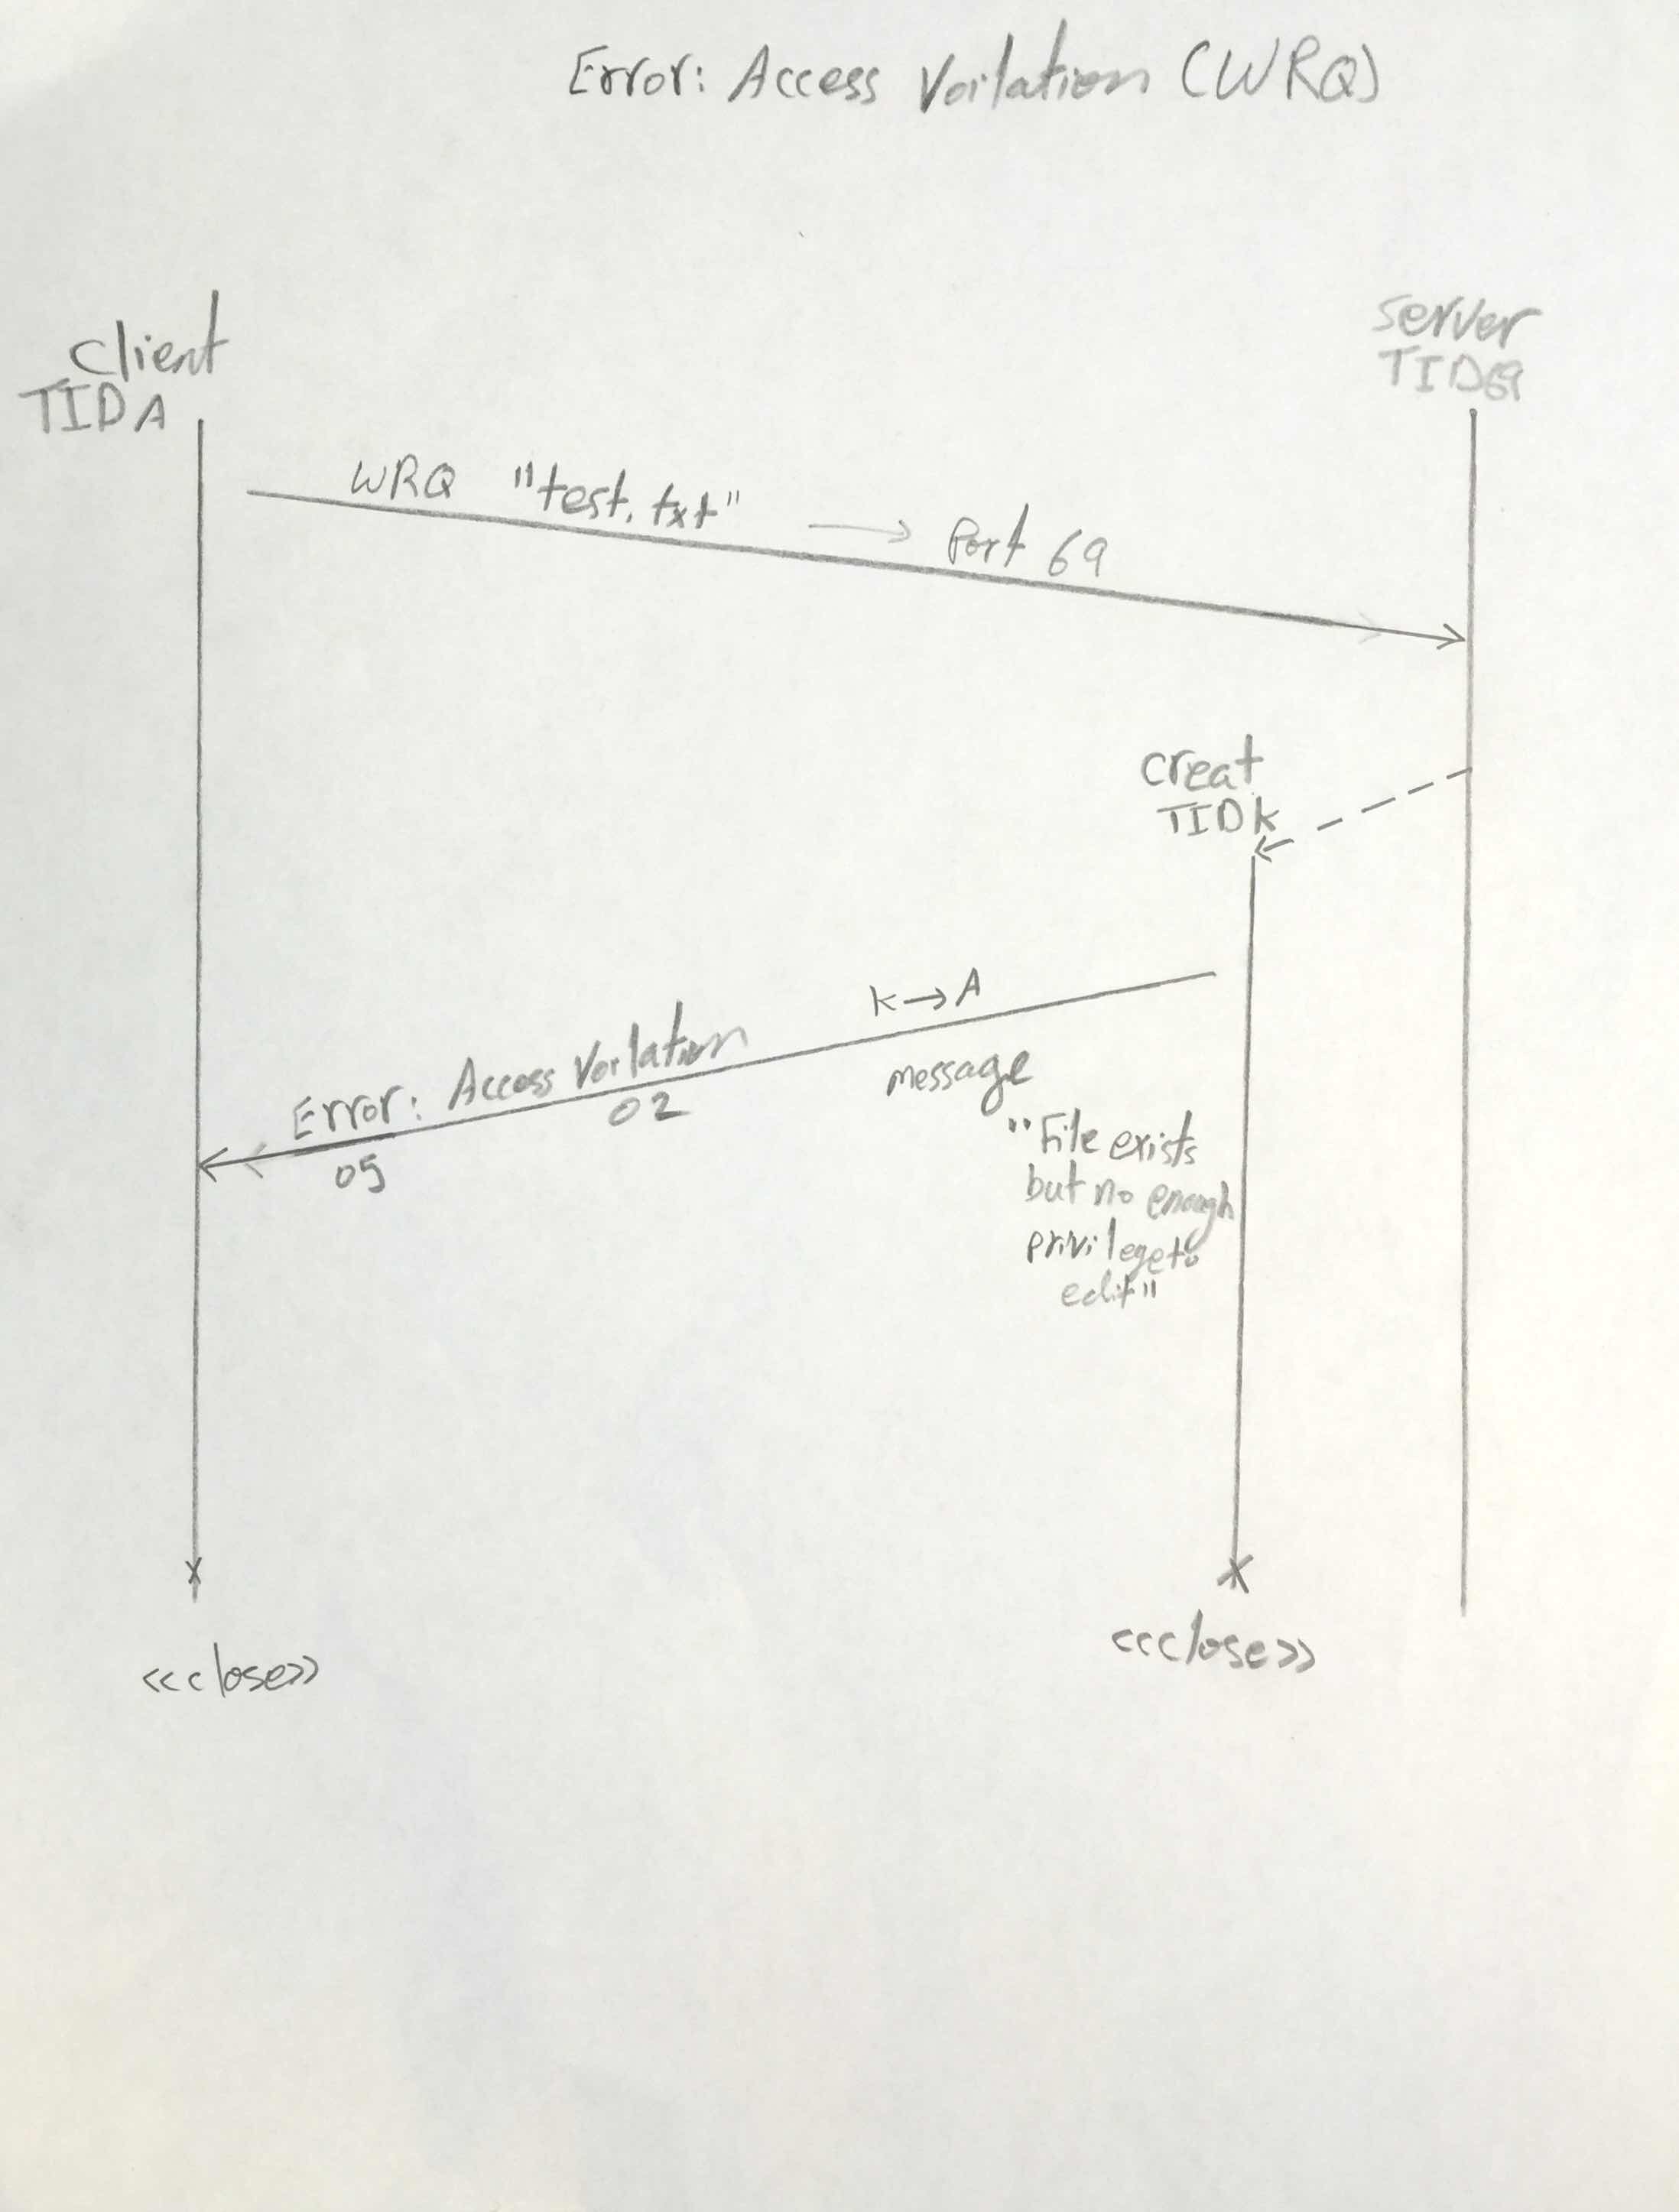 Error: Access Voilation (WRQ)
Client
TID A
server
TID69
WRQ "test.txt" → Port 69
creat
TID k
k → A
Error: Access Voilation
05
02
message
"File exists
but no enough
privilege to
edit"
<<close>>
<<close>>